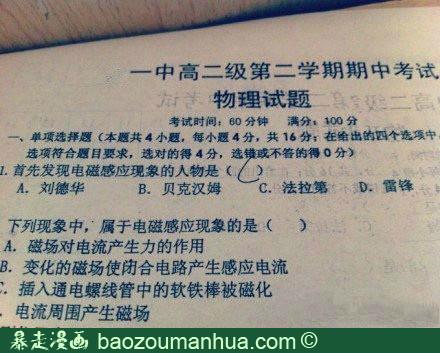 一中高二级第二学期期中考试
物理试题
考试时间:60分钟 满分:100分
一、单项选择题(本题共4小题,每小题4分,共16分;在给出的四个选项中,
选项符合题目要求,选对的得4分,选错或不答的得0分)
1.首先发现电磁感应现象的人物是( C )
A.刘德华 B.贝克汉姆 C.法拉第 D.雷锋
下列现象中,属于电磁感应现象的是( )
A.磁场对电流产生力的作用
B.变化的磁场使闭合电路产生感应电流
C.插入通电螺线管中的软铁棒被磁化
电流周围产生磁场
暴走漫画 baozoumanhua.com ©